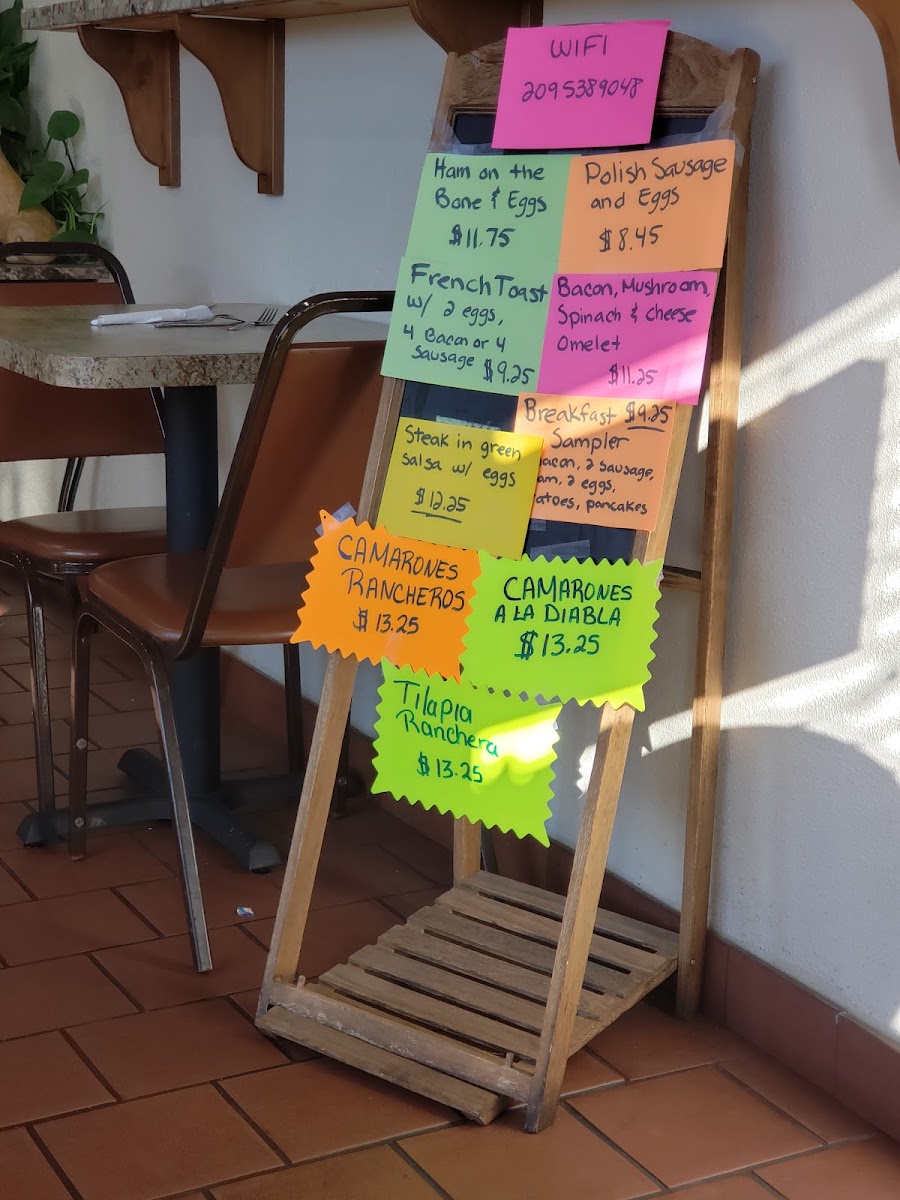 WIFI
2095389048
Ham on the
Bone & Eggs
$11.75
Polish Sausage
and Eggs
$8.45
French Toast
w/ 2 eggs,
4 Bacon or 4
Sausage $9.25
Bacon, Mushroom,
Spinach & cheese
Omelet
$11.25
Steak in green
salsa w/ eggs
$12.25
Breakfast $9.25
Sampler
acon, 2 sausage,
am, 2 eggs,
atoes, pancakes
CAMARONES
RANCHEROS
$13.25
CAMARONES
A LA DIABLA
$13.25
Tilapia
Ranchera
$13.25